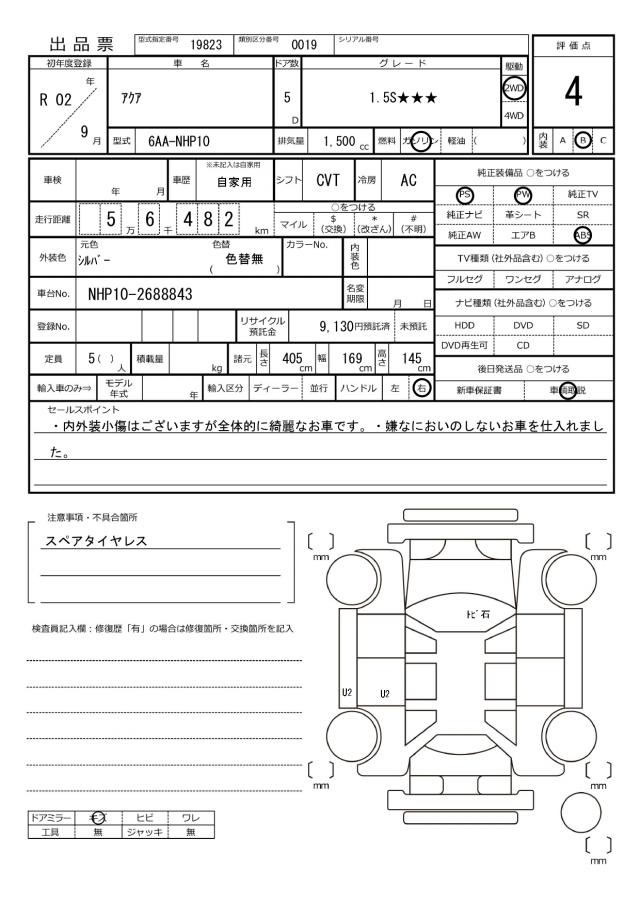 出品票 型式指定番号 19823 類別区分番号 0019 シリアル番号
評価点
初年度登録 車名 ドア数 グレード 駆動
R 02 年 アクア 5 D 1.5S★★★ 2WD 4
4WD
9 月 型式 6AA-NHP10 排気量 1,500 cc 燃料 ガソリン 軽油 ( ) 内装 A B C
車検 年 月 車歴 ※未記入は自家用 自家用 シフト CVT 冷房 AC
純正装備品 ○をつける
PS PW 純正TV
走行距離 5 万 6 千 4 8 2 km ○をつける
マイル $(交換) *(改ざん) #(不明)
純正ナビ 革シート SR
純正AW エアB ABS
外装色 元色 シルバー 色替 ( 色替無 ) カラーNo. 内装色
TV種類 (社外品含む) ○をつける
フルセグ ワンセグ アナログ
車台No. NHP10-2688843 名変期限 月 日
ナビ種類 (社外品含む) ○をつける
登録No. リサイクル預託金 9,130円預託済 未預託
HDD DVD SD
DVD再生可 CD
定員 5 ( ) 人 積載量 kg 諸元 長さ 405 cm 幅 169 cm 高さ 145 cm
後日発送品 ○をつける
輸入車のみ⇒ モデル年式 年 輸入区分 ディーラー 並行 ハンドル 左 右
新車保証書 車輌取説
セールスポイント
・内外装小傷はございますが全体的に綺麗なお車です。・嫌なにおいのしないお車を仕入れまし
た。
注意事項・不具合箇所
スペアタイヤレス
検査員記入欄：修復歴「有」の場合は修復箇所・交換箇所を記入
〔 〕 mm 〔 〕 mm
トビ石
U2 U2
〔 〕 mm 〔 〕 mm
ドアミラー キズ ヒビ ワレ
工具 無 ジャッキ 無
〔 〕 mm